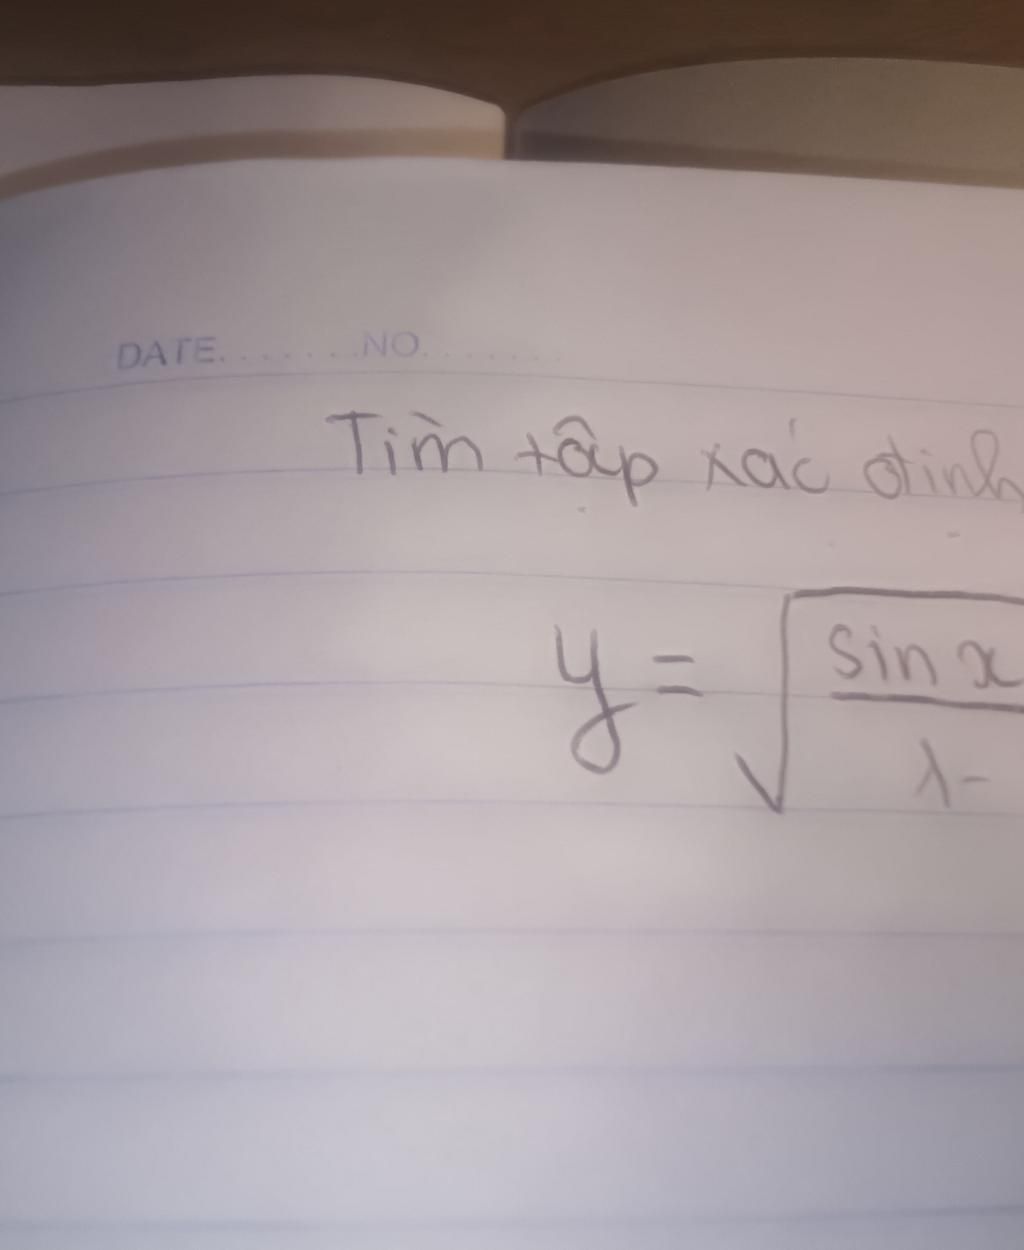 DATE.......NO.......
Tìm tập xác định
y = √ sin x